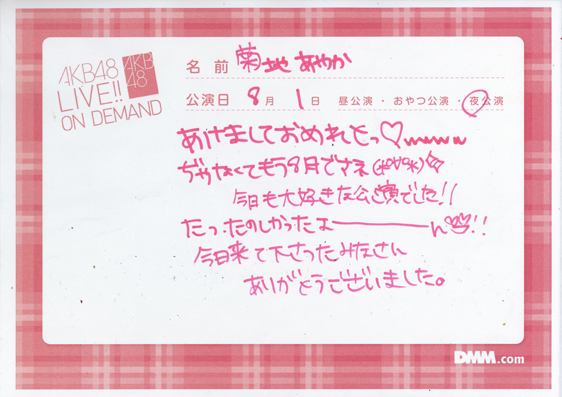 AKB48
LIVE!!
ON DEMAND
AKB
48
名前 菊地 あやか
公演日 8月 1日 昼公演・おやつ公演・夜公演
あけましておめれとっ♡wwww
ぢゃなくてもう8月ですね
今日も大好きな公演でした!!
たったのしかったよーーーーん!!
今日来て下さったみなさん
ありがとうございました。
DMM.com